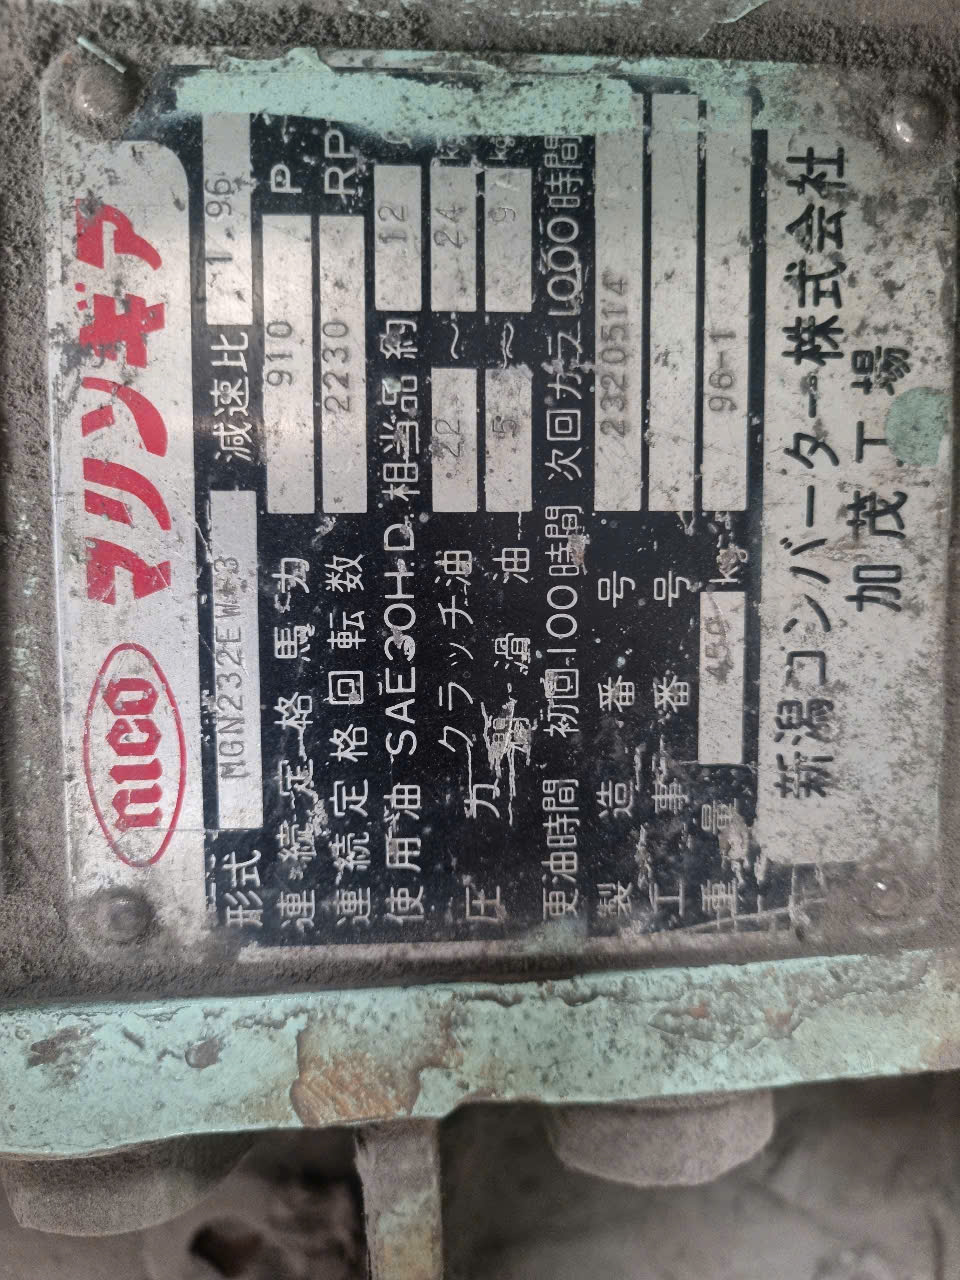 nico マリンギア
形式 MGN232EW 減速比 1.96
連続定格馬力 910 P
連続定格回転数 2230 RP
使用油 SAE30H.D.相当品 約 12
圧力 クラッチ油 22 〜 24
潤滑油 5 〜 9
更油時間 初回100時間 次回カラ1,000時間
製造番号 2320514
工事番号
重量 450 kg 96-1
新潟コンバーター株式会社
加茂工場